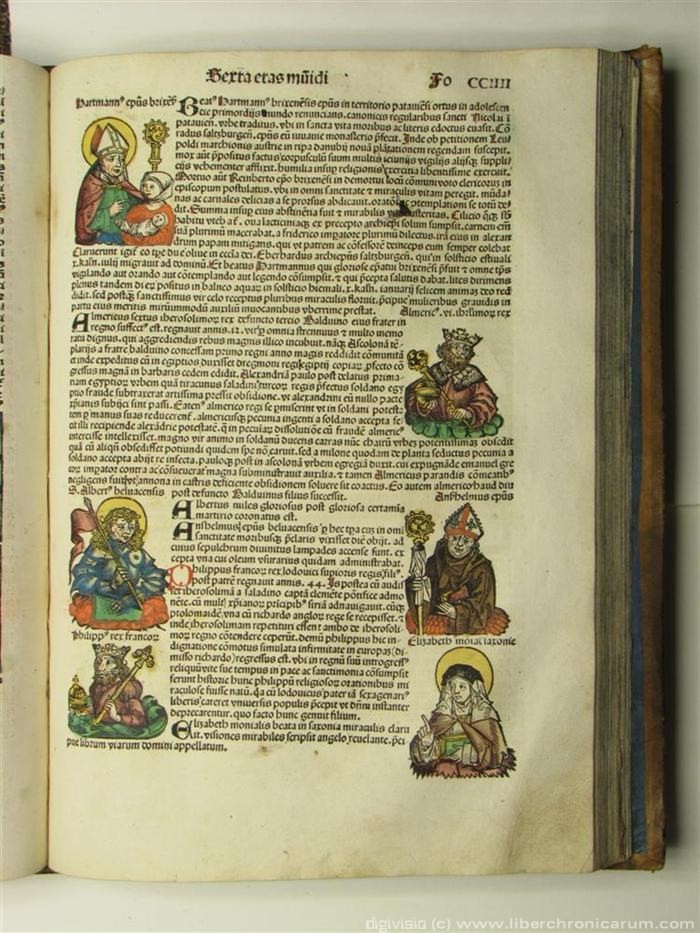 Sexta etas mūdi
Fo CCIIII
Hartmannꝰ ep̄us brixēn̄
Beatꝰ Hartmannꝰ brixenēsis ep̄us in territorio patauiēn̄ ortus in adolescen
tie primordijs mundo renuncians. canonicis regularibus sancti Nicolai i
patauien̄. vrbe traditus. vbi in sancta vita moribus ac literis edoctus euasit. Cō
radus saltzburgen̄. ep̄us eū iuuauie monasterio p̄fecit. Inde ob petitionem Leu
poldi marchionis austrie in ripa danubij nouā plātationem regendam suscepit.
mox aūt p̄positus factus corpusculū suum multis ieiunijs vigilijs alijsqꝫ suppli
cijs vehementer afflixit. humilia insup religionis exercitia libentissime exercuit.
Mortuo aūt Reinberto ep̄o brixinēsi in demortui locū cōmuni voto clericorum in
episcopum postulatus. vbi in omni sanctitate et miraculis vitam peregit. mūda
nas ac carnales delicias a se prorsus abdicauit. oratōīe ꝯtemplationi se totū de
dit. Summa insup eius abstinētia fuit et mirabilis austeritas. Cilicio
habitu vteba t̄. oua lacticiniaqꝫ ex precepto archiep̄i solum sumpsit. carnem
quā plurimū macerabat. a friderico impatore plurimū dilectus. irā eius in alexan
drum papam mitigans. qui vt patrem ac cōfessorē deinceps eum semper colebat
Claruerunt igit̄ eo tp̄e due oliue in ecclīa dei. Eberhardus archiep̄us saltzburgen̄. qui in solsticio estiuali
x. kaln̄. iulij migrauit ad dominū. Et beatus Hartmannus qui gloriose ep̄atui brixenēn̄ p̄fuit et omne tp̄s
vigilando aut orando aut cōtemplando aut legendo cōsumpsit. et qui p̄cepta salutis dabat. lites dirimens
plenus tandem dieꝝ positus in balneo aquarꝫ in solsticio hiemali. x. kaln̄. ianuarij felicem animaꝫ deo red
didit. sed postqꝫ sanctissimus vir celo receptus pluribus miraculis floruit. p̄cipue mulieribus grauidis in
partu eius meritis mirūimmodū auxiliū inuocantibus vberrime prestat.
Almericꝰ. vi. iherlimoꝝ rex
Almericus sextus iherosolimoꝝ rex defuncto tercio Balduino eius frater in
regno suffectꝰ est. regnauit annis. 12. vir ꝑ omnia strennuus et multo memo
ratu dignus. qui aggrediendis rebus magnis illico incubuit. nāqꝫ Ascolonā tē
plarijs a fratre balduino concessam primo regni anno magis reddidit cōmunitā
et inde expeditus cū in egiptios duxisset dregmoni regisqꝫ egiptij copias p̄fecto cō
gressus magnā in barbaris cedem edidit. Alexandriā paulo post delatus prima
nam egyptioꝝ vrbem quā tiracunus saladini turcoꝝ regis p̄fectus soldano egy
ptio fraude subtraxerat artissima pressit obsidione. vt alexandrini cū nullo pacte
xp̄ianis subijci sint passi. Eatenꝰ almerico regi se p̄miserunt vt in soldani potesta
tem p̄ manus suas reducerent. almericusqꝫ pecunia ingenti a soldano accepta fe
cit illi recipiende alexādrie potestatē. qͥ in pecuiaꝝ dissolutiōe cū fraudē almericꝰ
intercisse intellexisset. magno vir animo in soldanū ducens catras nūc chairū vrbeꝫ potentissimaꝫ obsedit
quā cū aliqͣn̄ obsedisset potiundi quidem spe nō caruit. sed a milone quodam de planta seductus pecunia a
soldano accepta abijt re infecta. pauloqꝫ post in ascolonā vrbem egregiā duxit. cui expugnāde emanuel gre
coꝝ impator contra ac cōsueuerat magna subministrauit auxilia. et tamen Almericus parandis cōmeatibꝰ
negligens fuit. vt annona in castris deficiente obsidionem soluere sit coactus. Eo autem almerico haud diu
post defuncto Balduinus filius successit.
S. Albertꝰ beluacensis
Anshelmus ep̄us
Albertus miles gloriosus post gloriosa certamīa
martirio coronatus est.
Anshelmus ep̄us beluacensis ꝑ hec tpa cuꝫ in omni
sanctitate moribusqꝫ p̄claris vixisset diē obijt. ad
cuius sepulchrum diuinitus lampades accense sunt. ex
cepta vna cui oleum vsurarius quidam administrabat.
Philippus francoꝝ rex lodouici supioris regis filiꝰ.
post patrē regnauit annis. 44. Is postea cū audis
set iherosolimā a saladino captā clemēte pontifice admo
nēte. cū multꝭ xp̄ianoꝝ pricipibꝰ siriā adnauigauit. cūqꝫ
ptolomaidē vna cū richardo angloꝝ rege se recepisset. et
inde iherosolimam repetituri essent ambo de iherosoli
moꝝ regno cōtendere ceperūt. demū philippus hic in
dignatione cōmotus simulata infirmitate in europaꝫ (di
misso richardo) regressus est. vbi in regnū suū introgressꝰ
reliquū vite sue tempus in pace ac sanctimonia cōsumpsit
ferunt historie hunc philippū religiosoꝝ orationibus mi
raculose fuisse natū. qͣ cū lodouicus pater iā sexagenariꝰ
liberis careret vniuersis populis p̄cepit vt dn̄m instanter
deprecarentur. quo facto hunc genuit filium.
Philippꝰ rex francoꝝ
Elizabeth moīal saxonie
Elizabeth monialis beata in saxonia miraculis claru
it. visiones mirabiles scripsit angelo reuelante. p̄ci
pue librum viarum domini appellatum.
digivisio (c) www.liberchronicarum.com